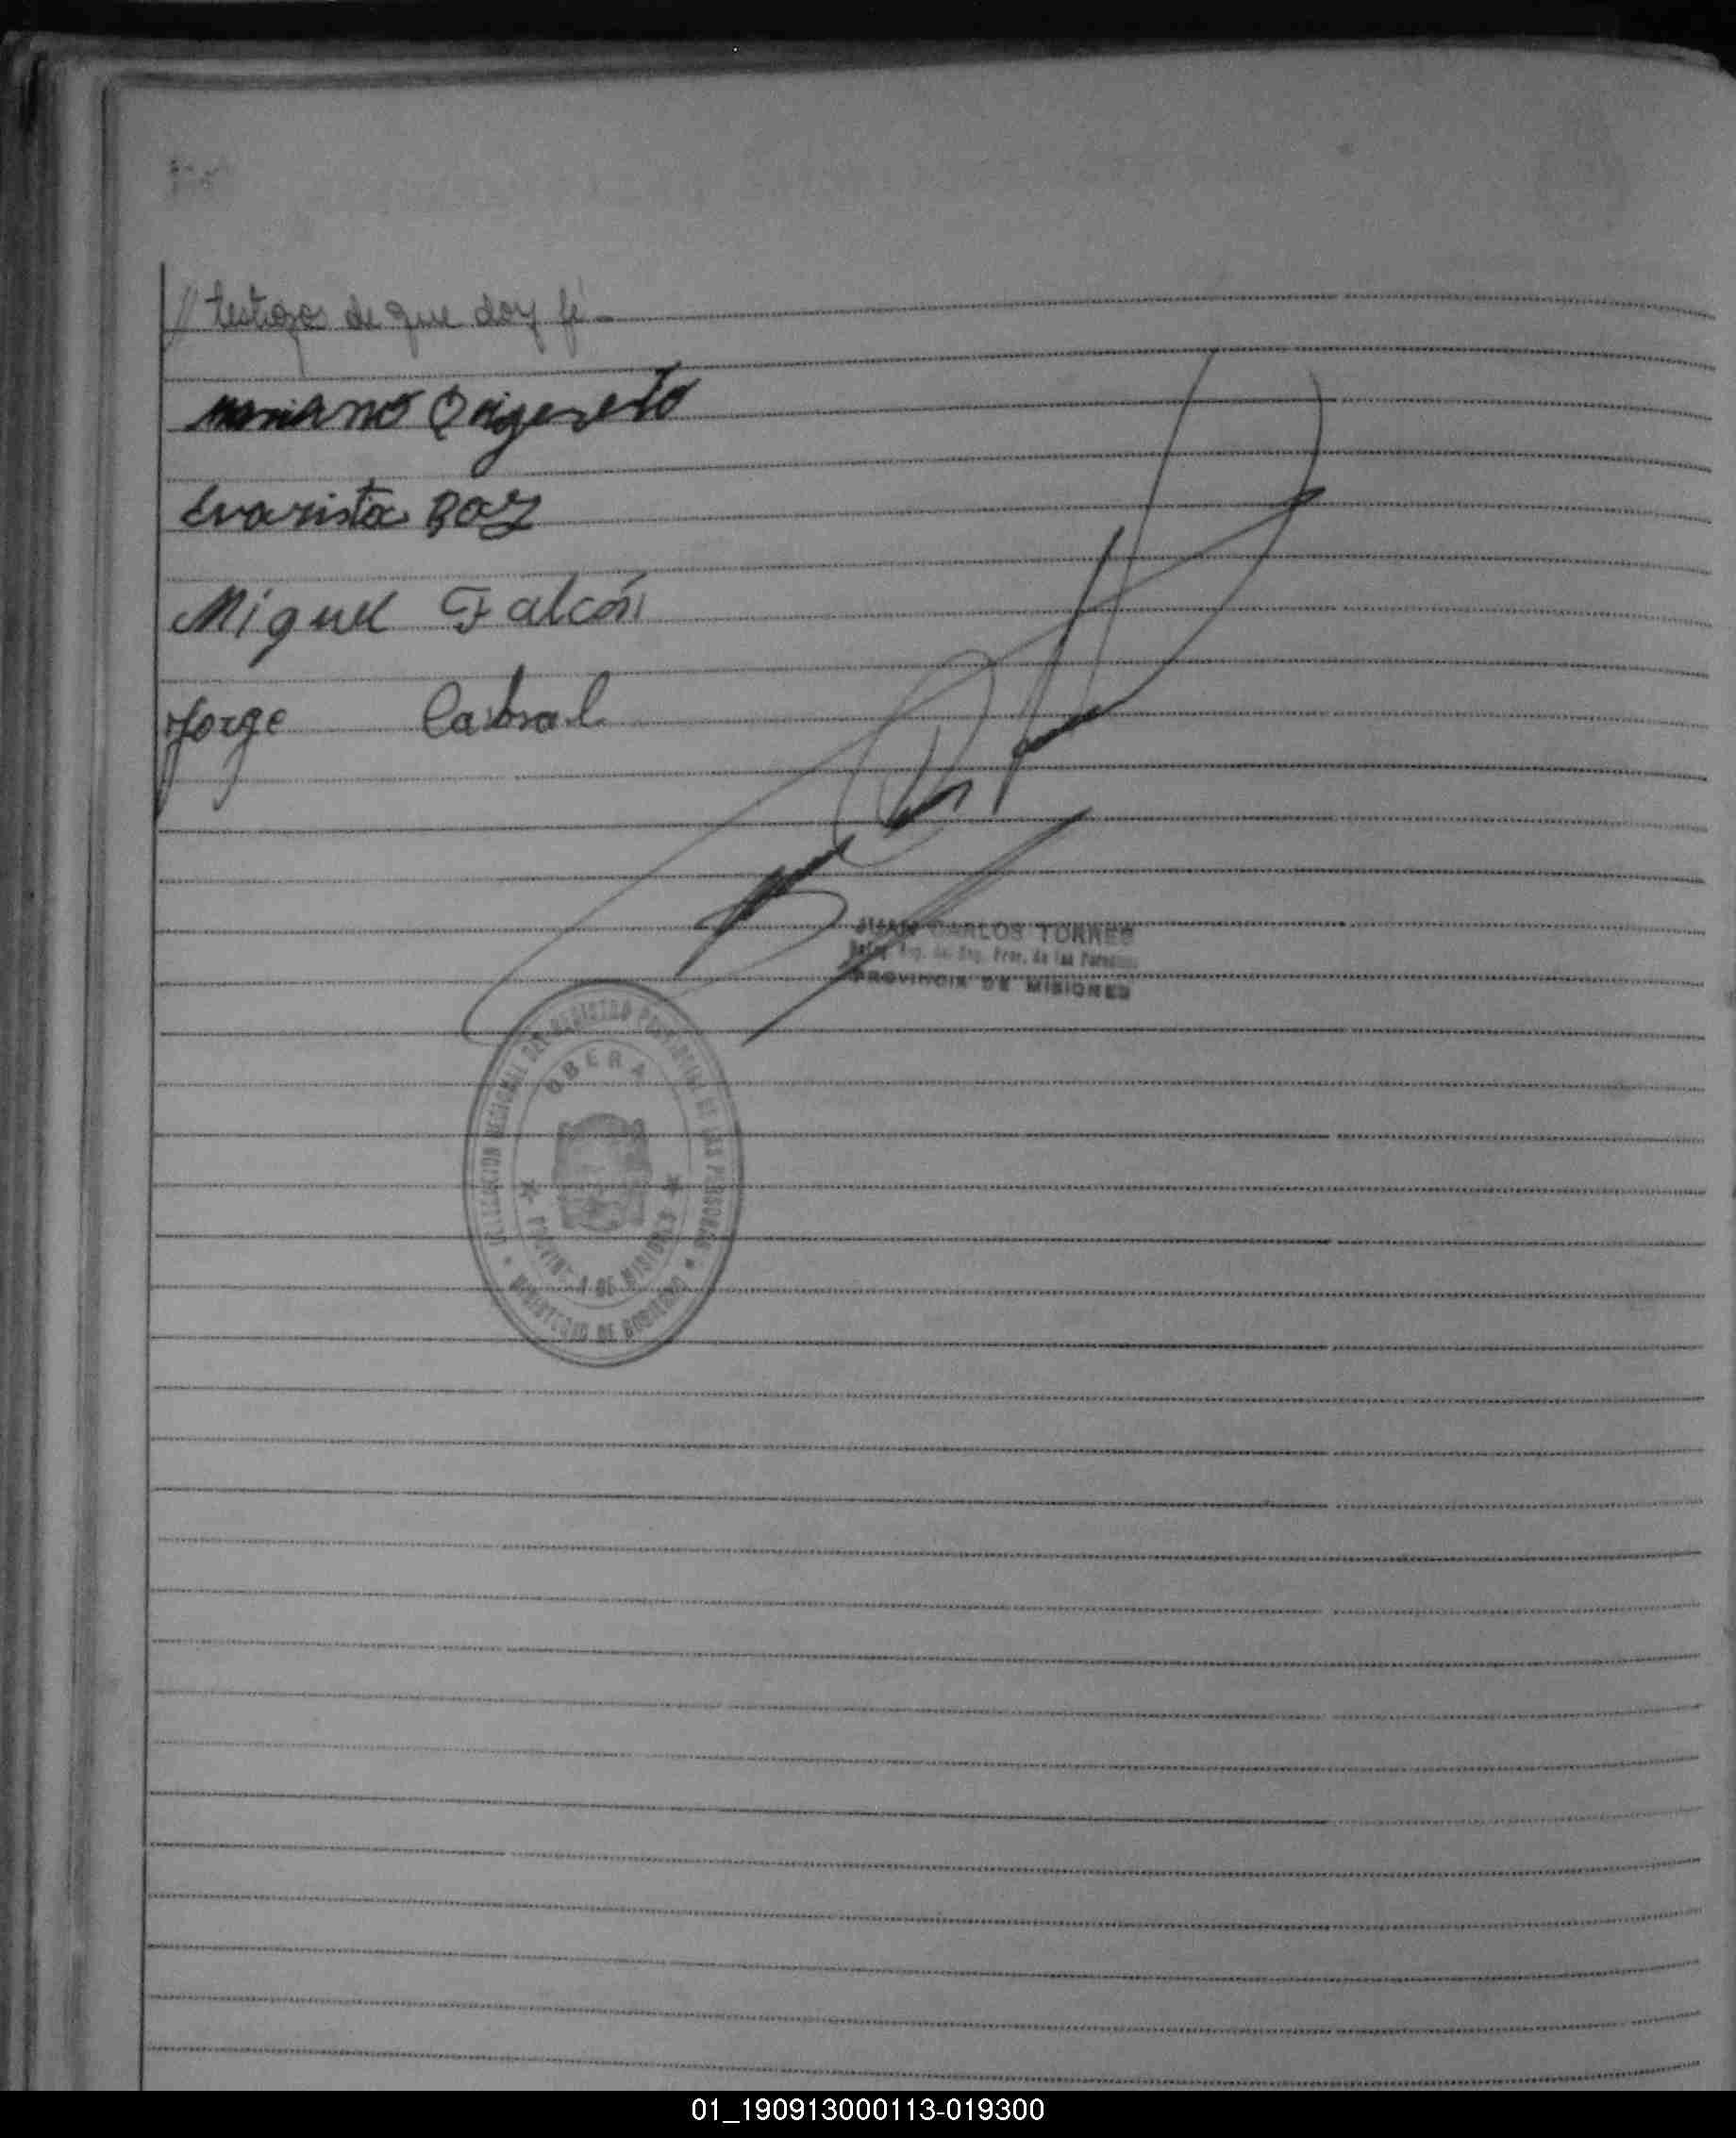 // testigos de que doy fé -
Mariano
Evarista Boz
Miguel Falcón
Jorge Cabral
JUAN CARLOS TORRES
Deleg. Reg. de Reg. Prov. de las Personas
PROVINCIA DE MISIONES
DELEGACION REGIONAL DEL REGISTRO PROVINCIAL DE LAS PERSONAS
OBERA
PROVINCIA DE MISIONES
MINISTERIO DE GOBIERNO
01_190913000113-019300